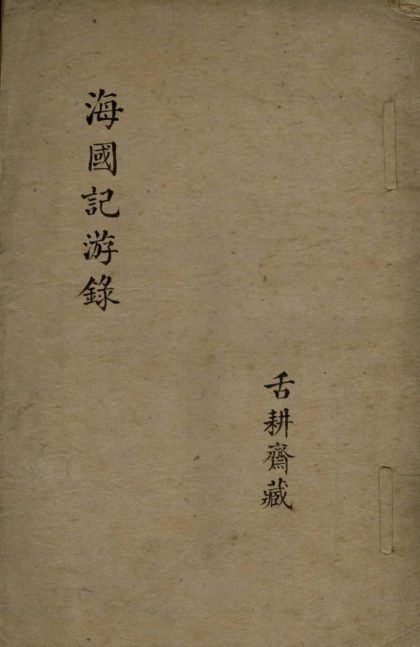 舌耕齋藏
海國記游錄